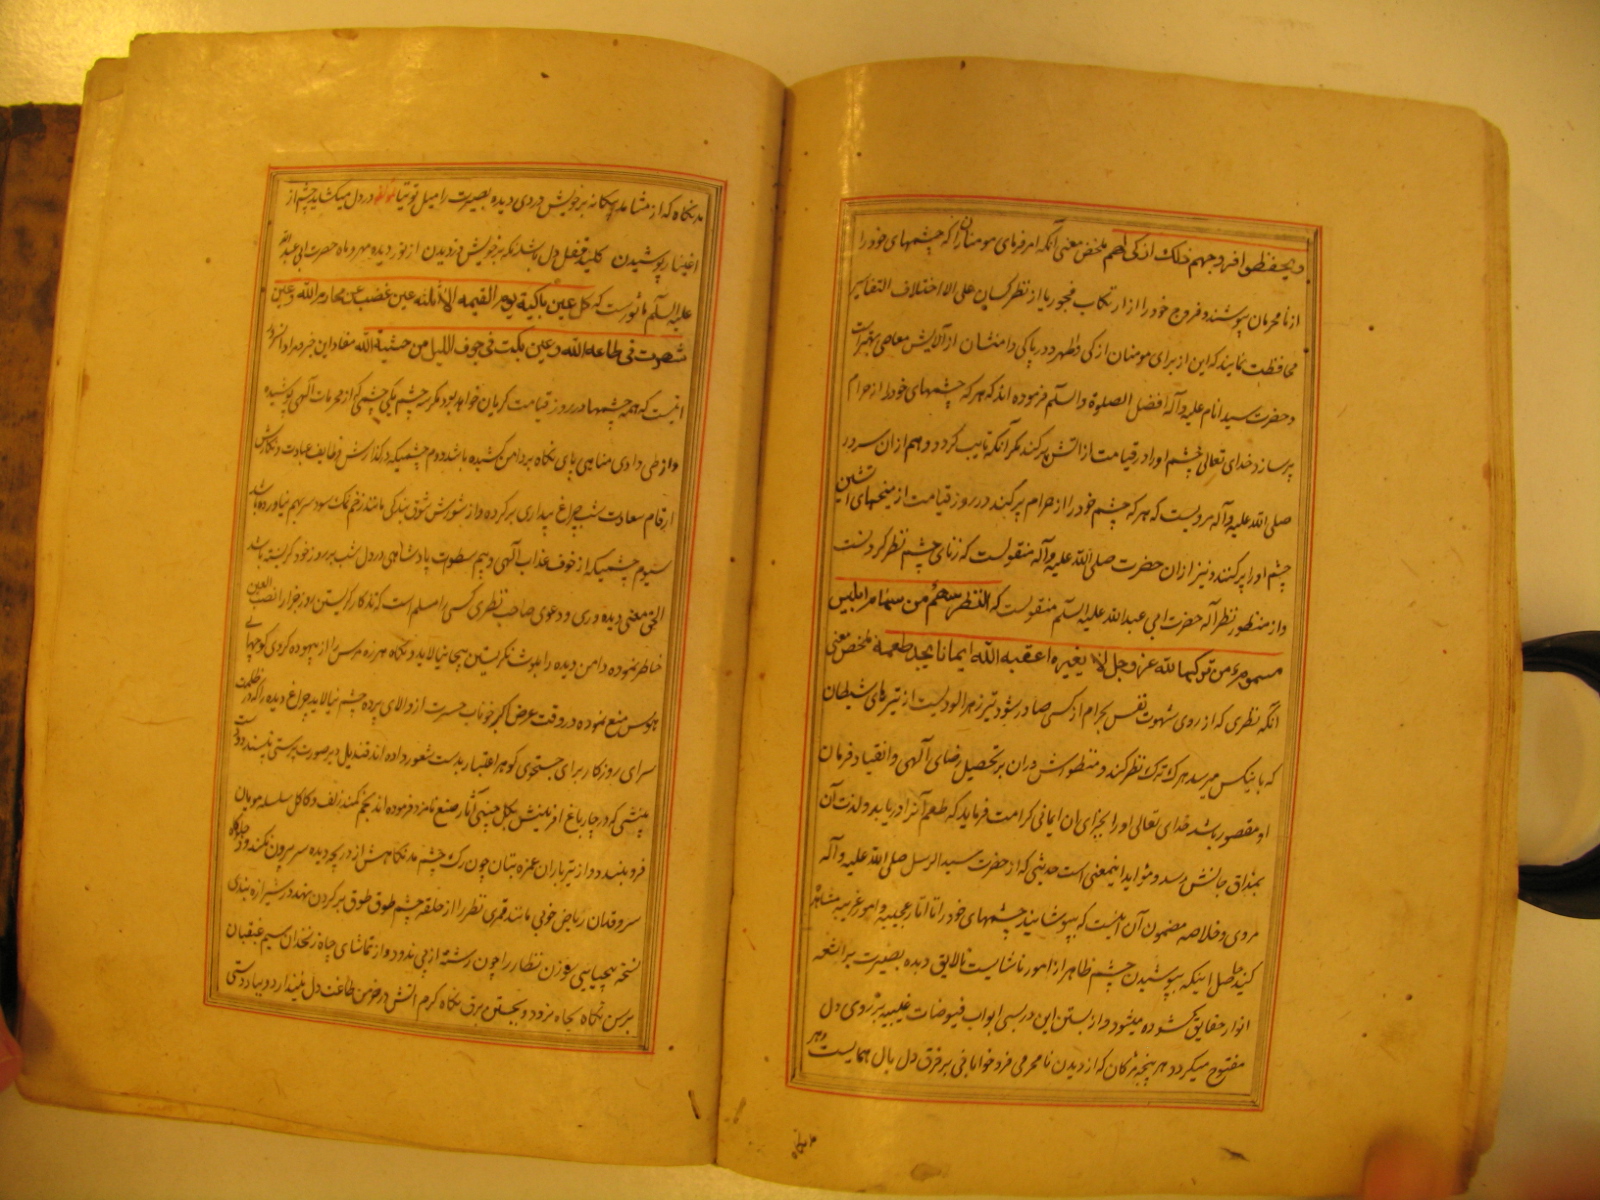 و یحفظوا فروجهم ذلک ازکی لهم ملخص معنی آنکه امر فرمای مومنان را که چشمهای خود را
از نامحرمان بپوشند و فروج خود را از ارتکاب فجور یا از نظر کسان علی الاختلاف التفاسیر
محافظت نمایند که این از برای مومنان ازکی و اطهر و در پاکی دامنشان از آلایش معاصی بهتر است
و حضرت سید انام علیه و آله افضل الصلوة والسلم فرموده اند که هر که چشمهای خود را از حرام
پر سازد خدای تعالی چشم او را در قیامت از آتش پر کند مگر آنکه تایب کردد و هم از ان سرور
صلی الله علیه و آله مرویست که هر که چشم خود را از حرام پر کند در روز قیامت از میخهای آتشین
چشم او را پر کنند و نیز از ان حضرت صلی الله علیه و آله منقولست که زنای چشم نظر کردنست
و از منظور نظر آله حضرت ابی عبدالله علیه السلم منقولست که النظر سهم من سهام ابلیس
مسموم من ترکها لله عز وجل لا لغیره اعقبه الله ایمانا یجد طعمه ملخص معنی
آنکه نظری که از روی شهوت نفس بحرام از کسی صادر شود تیر زهرالودیست از تیرهای شیطان
که باینکس میرسد هر که ترک نظر کند و منظورش دران بر تحصیل رضای آلهی و انقیاد فرمان
او مقصور باشد خدای تعالی او را بجزای ان ایمانی کرامت فرماید که طعم آنرا دریابد و لذت آن
بمذاق جانش رسد و موید اینمعنی است حدیثی که از حضرت سید الرسل صلی الله علیه و آله
مروی و خلاصه مضمون آن اینست که بپوشانید چشمهای خود را تا آثار عجیبه و امور غریبه مشاهده
کنید حاصل اینکه بپوشیدن چشم ظاهر از امور ناشایست نالایق دیده بصیرت بر اشعه
انوار حقایق کشوده میشود و از بستن این در بسی ابواب فیوضات غیبیه بر روی دل
مفتوح میکردد هر پنجه مژکان که از دیدن نامحرمی فرو خوابانی بر فرق دل بال همایست و هر
مد نکاه
مد نکاه که از مشاهده بیکانه بر خویش دزدی دیده بصیرت را میل توتیا در دل میکشاید چشم از
اغیار پوشیدن کلید قفل دل باشد نکه بر خویش دزدیدن از نور دیده مهر و ماه حضرت ابی عبدالله
علیه السلم ماثورست که کل عین باکیة یوم القیمه الا ثلثه عین غضت عن محارم الله و عین
سهرت فی طاعه الله و عین بکت فی جوف اللیل من خشیة الله مفاد این خبر
اینست که همه چشمها در روز قیامت کریان خواهد بود مکر سه چشم یکی چشمی که از محرمات آلهی پوشیده
و از طی وادی مناهی پای نکاه بر دامن کشیده باشد دوم چشمیکه در کذارش وظایف عبادت و نکارش
ارقام سعادت شب چراغ بیداری بر کرده و از شورش شوق بندکی مانند زخم نمک سود سر بهم نیاورده باشد
سیوم چشمیکه از خوف عذاب آلهی و بیم سطوت پادشاهی در دل شب بر روز خود کریسته باشد
الحق معنی دیده وری و دعوی صاحب نظری کسی را مسلم است که تذکار کریستن روز جزا را نصب العین
خاطر نموده دامن دیده را بلوث نکریستن بیجا نیالاید و نکاه هرزه مرس را از بیهوده کردی کوچهای
هوس منع نموده در وقت عرض اکبر خوناب حسرت از والای پرده چشم نپالاید چراغ دیده را که در ظلمت
سرای روزکار برای جستجوی کوهر اعتبار بدست شعور داده اند قندیل دیر صورت پرستی نپسندد
بینشی که در چارباغ افرینش بکل چینی آثار صنع نامزد فرموده اند بخم کمند زلف و کاکل سلسله مویان
فرو نبندد و از تیرباران غمزه بتان چون رک چشم مد نکاهش از دریچه دیده سر بیرون نکند و در جلوکاه
سروقدان ریاض خوبی مانند قمری نظر را از حلقه چشم طوق طوق بر کردن ننهد و در شیرازه بندی
نسخه بیحیایی سوزن نظار را چون رشته از پی ندود و از تماشای چاه زنخدان سیم غبغبان
برسن نکاه بچاه نرود و بجستن برق نکاه کرم آتش در خرمن طاعت دل نیندازد و بیاد دستی